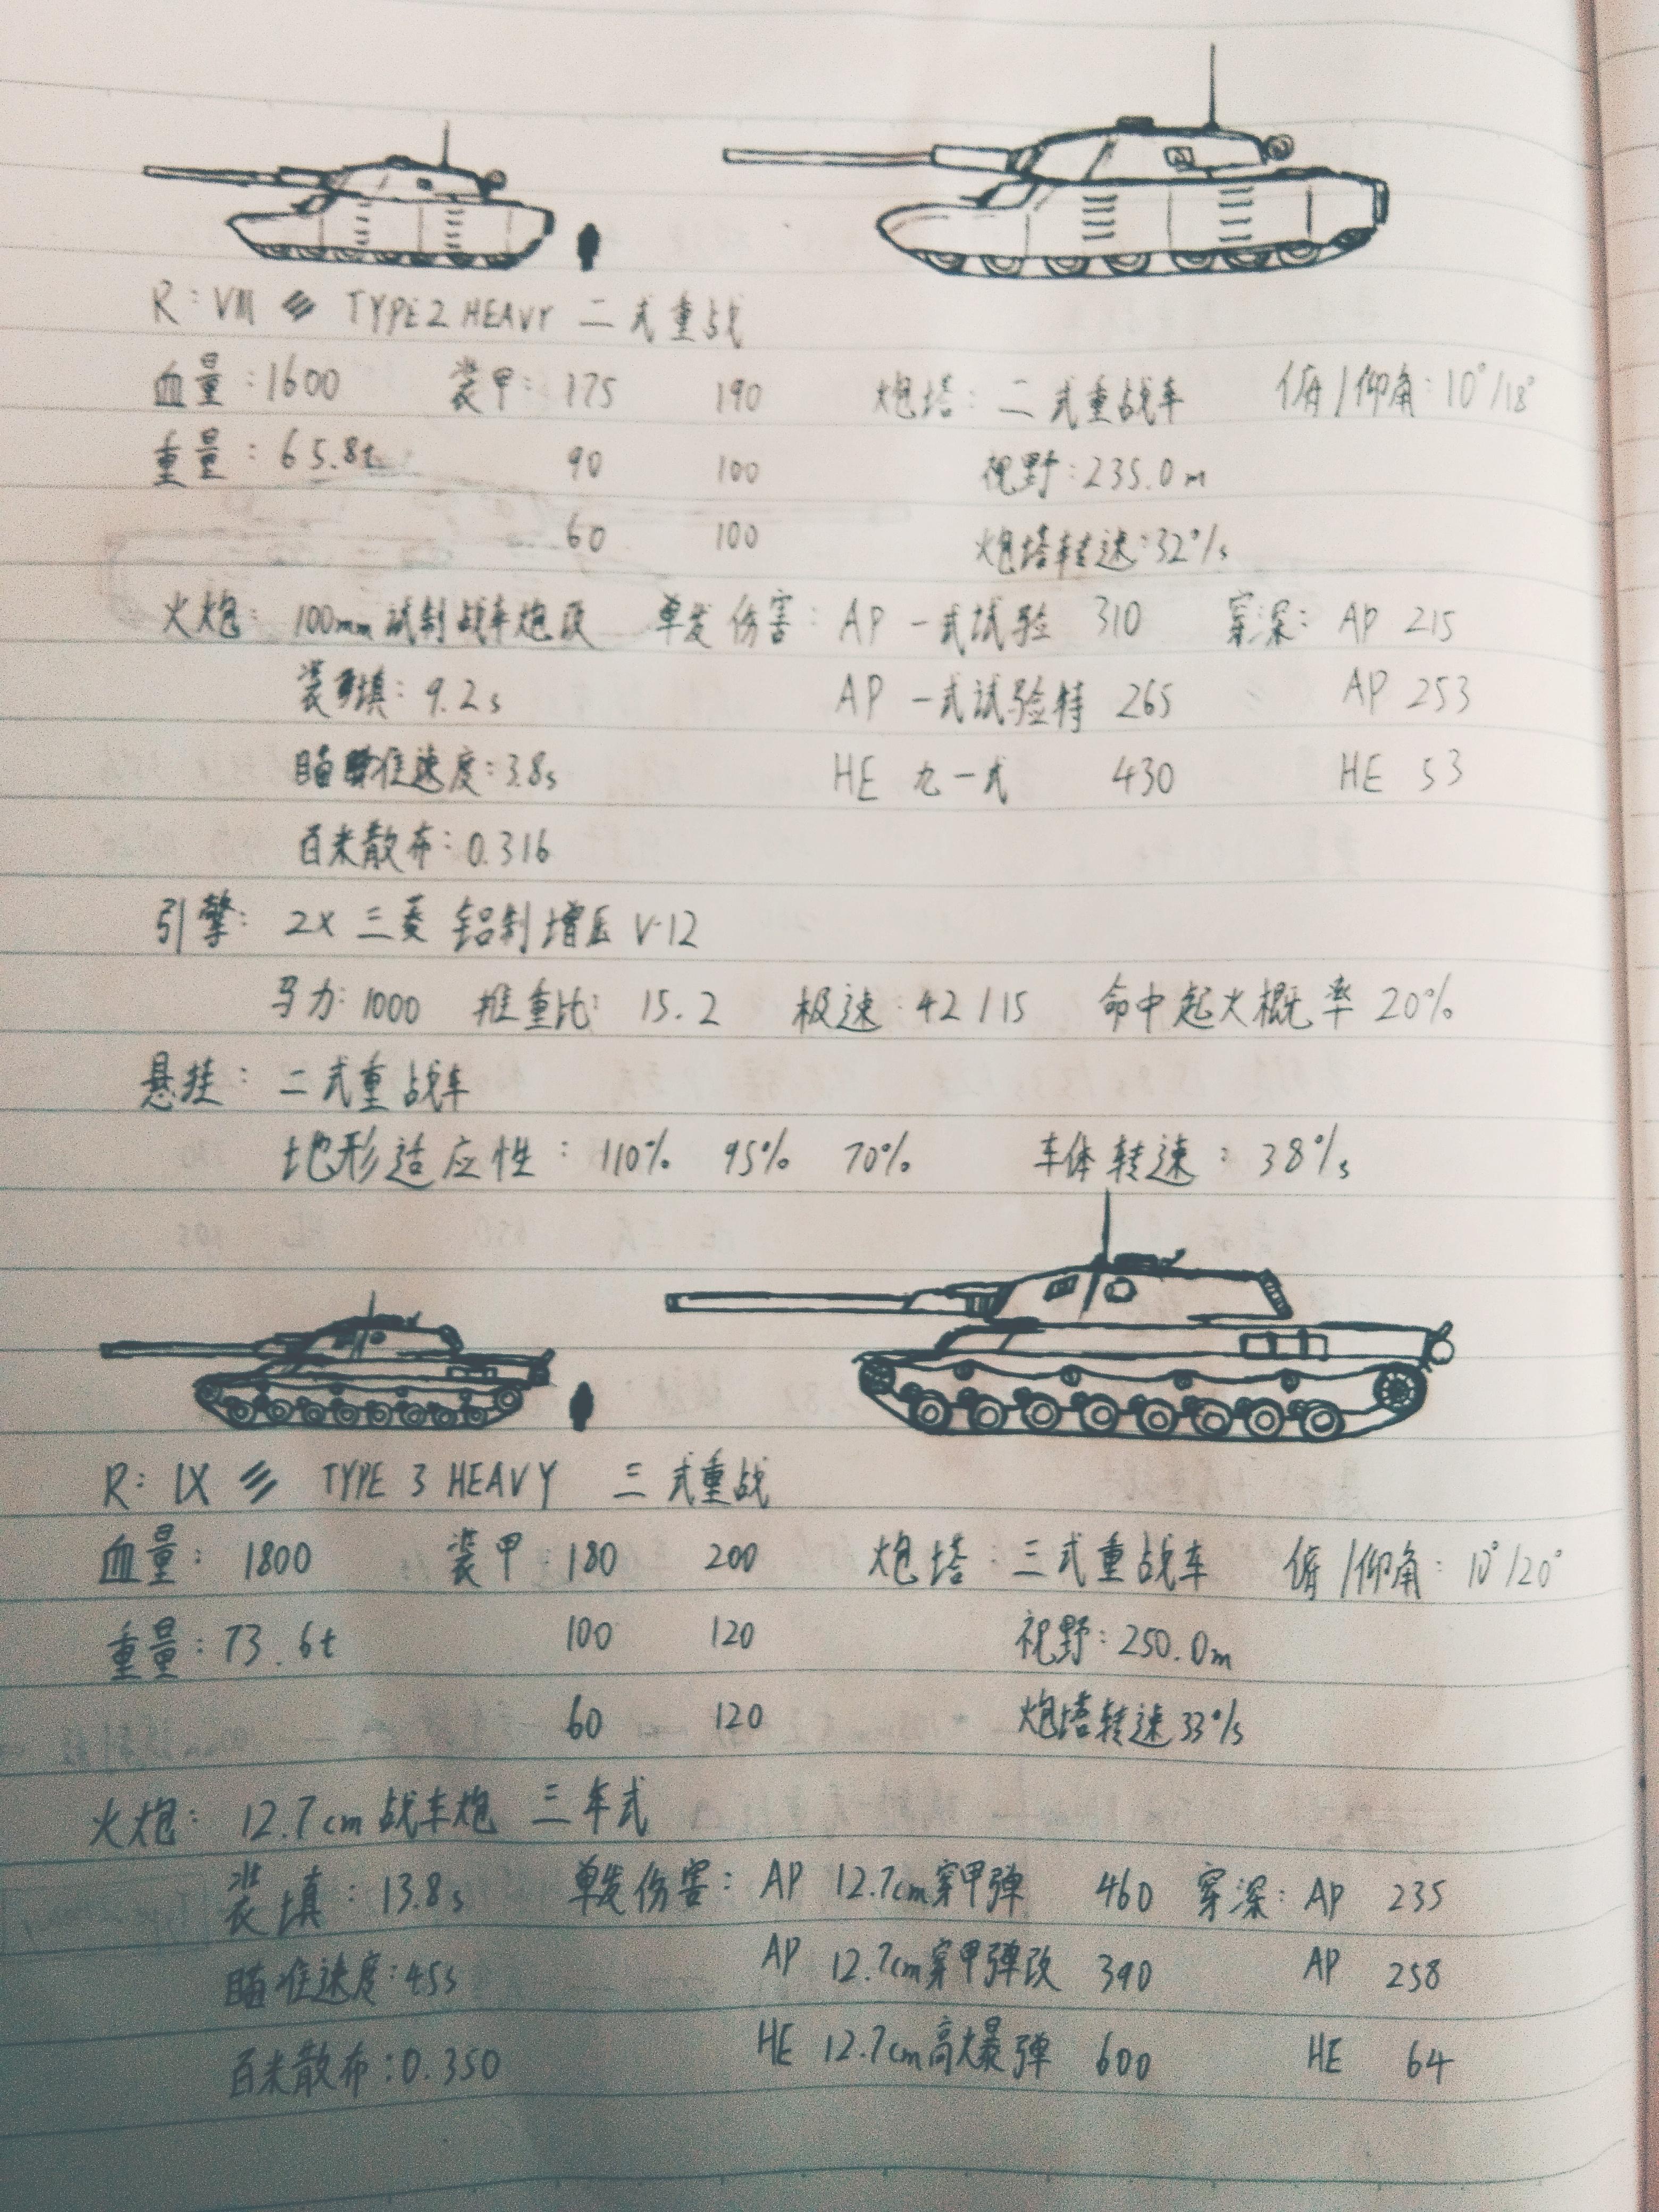 R: VIII TYPE 2 HEAVY 二式重战
血量:1600 装甲:175 190 炮塔:二式重战车 俯/仰角:10°/18°
重量:65.8t 90 100 视野:235.0m
60 100 炮塔转速:32°/s
火炮:100mm试制战车炮改 单发伤害:AP 一式试验 310 穿深:AP 215
装填:9.2s AP 一式试验特 265 AP 253
瞄准速度:3.8s HE 九一式 430 HE 53
百米散布:0.316
引擎:2X 三菱 铝制增压 V-12
马力:1000 推重比:15.2 极速:42/15 命中起火概率 20%
悬挂:二式重战车
地形适应性:110% 95% 70% 车体转速:38°/s
R: IX TYPE 3 HEAVY 三式重战
血量:1800 装甲:180 200 炮塔:三式重战车 俯/仰角:10°/20°
重量:73.6t 100 120 视野:250.0m
60 120 炮塔转速 33°/s
火炮:12.7cm战车炮 三年式
装填:13.8s 单发伤害:AP 12.7cm穿甲弹 460 穿深:AP 235
瞄准速度:4.5s AP 12.7cm穿甲弹改 390 AP 258
百米散布:0.350 HE 12.7cm高爆弹 600 HE 64